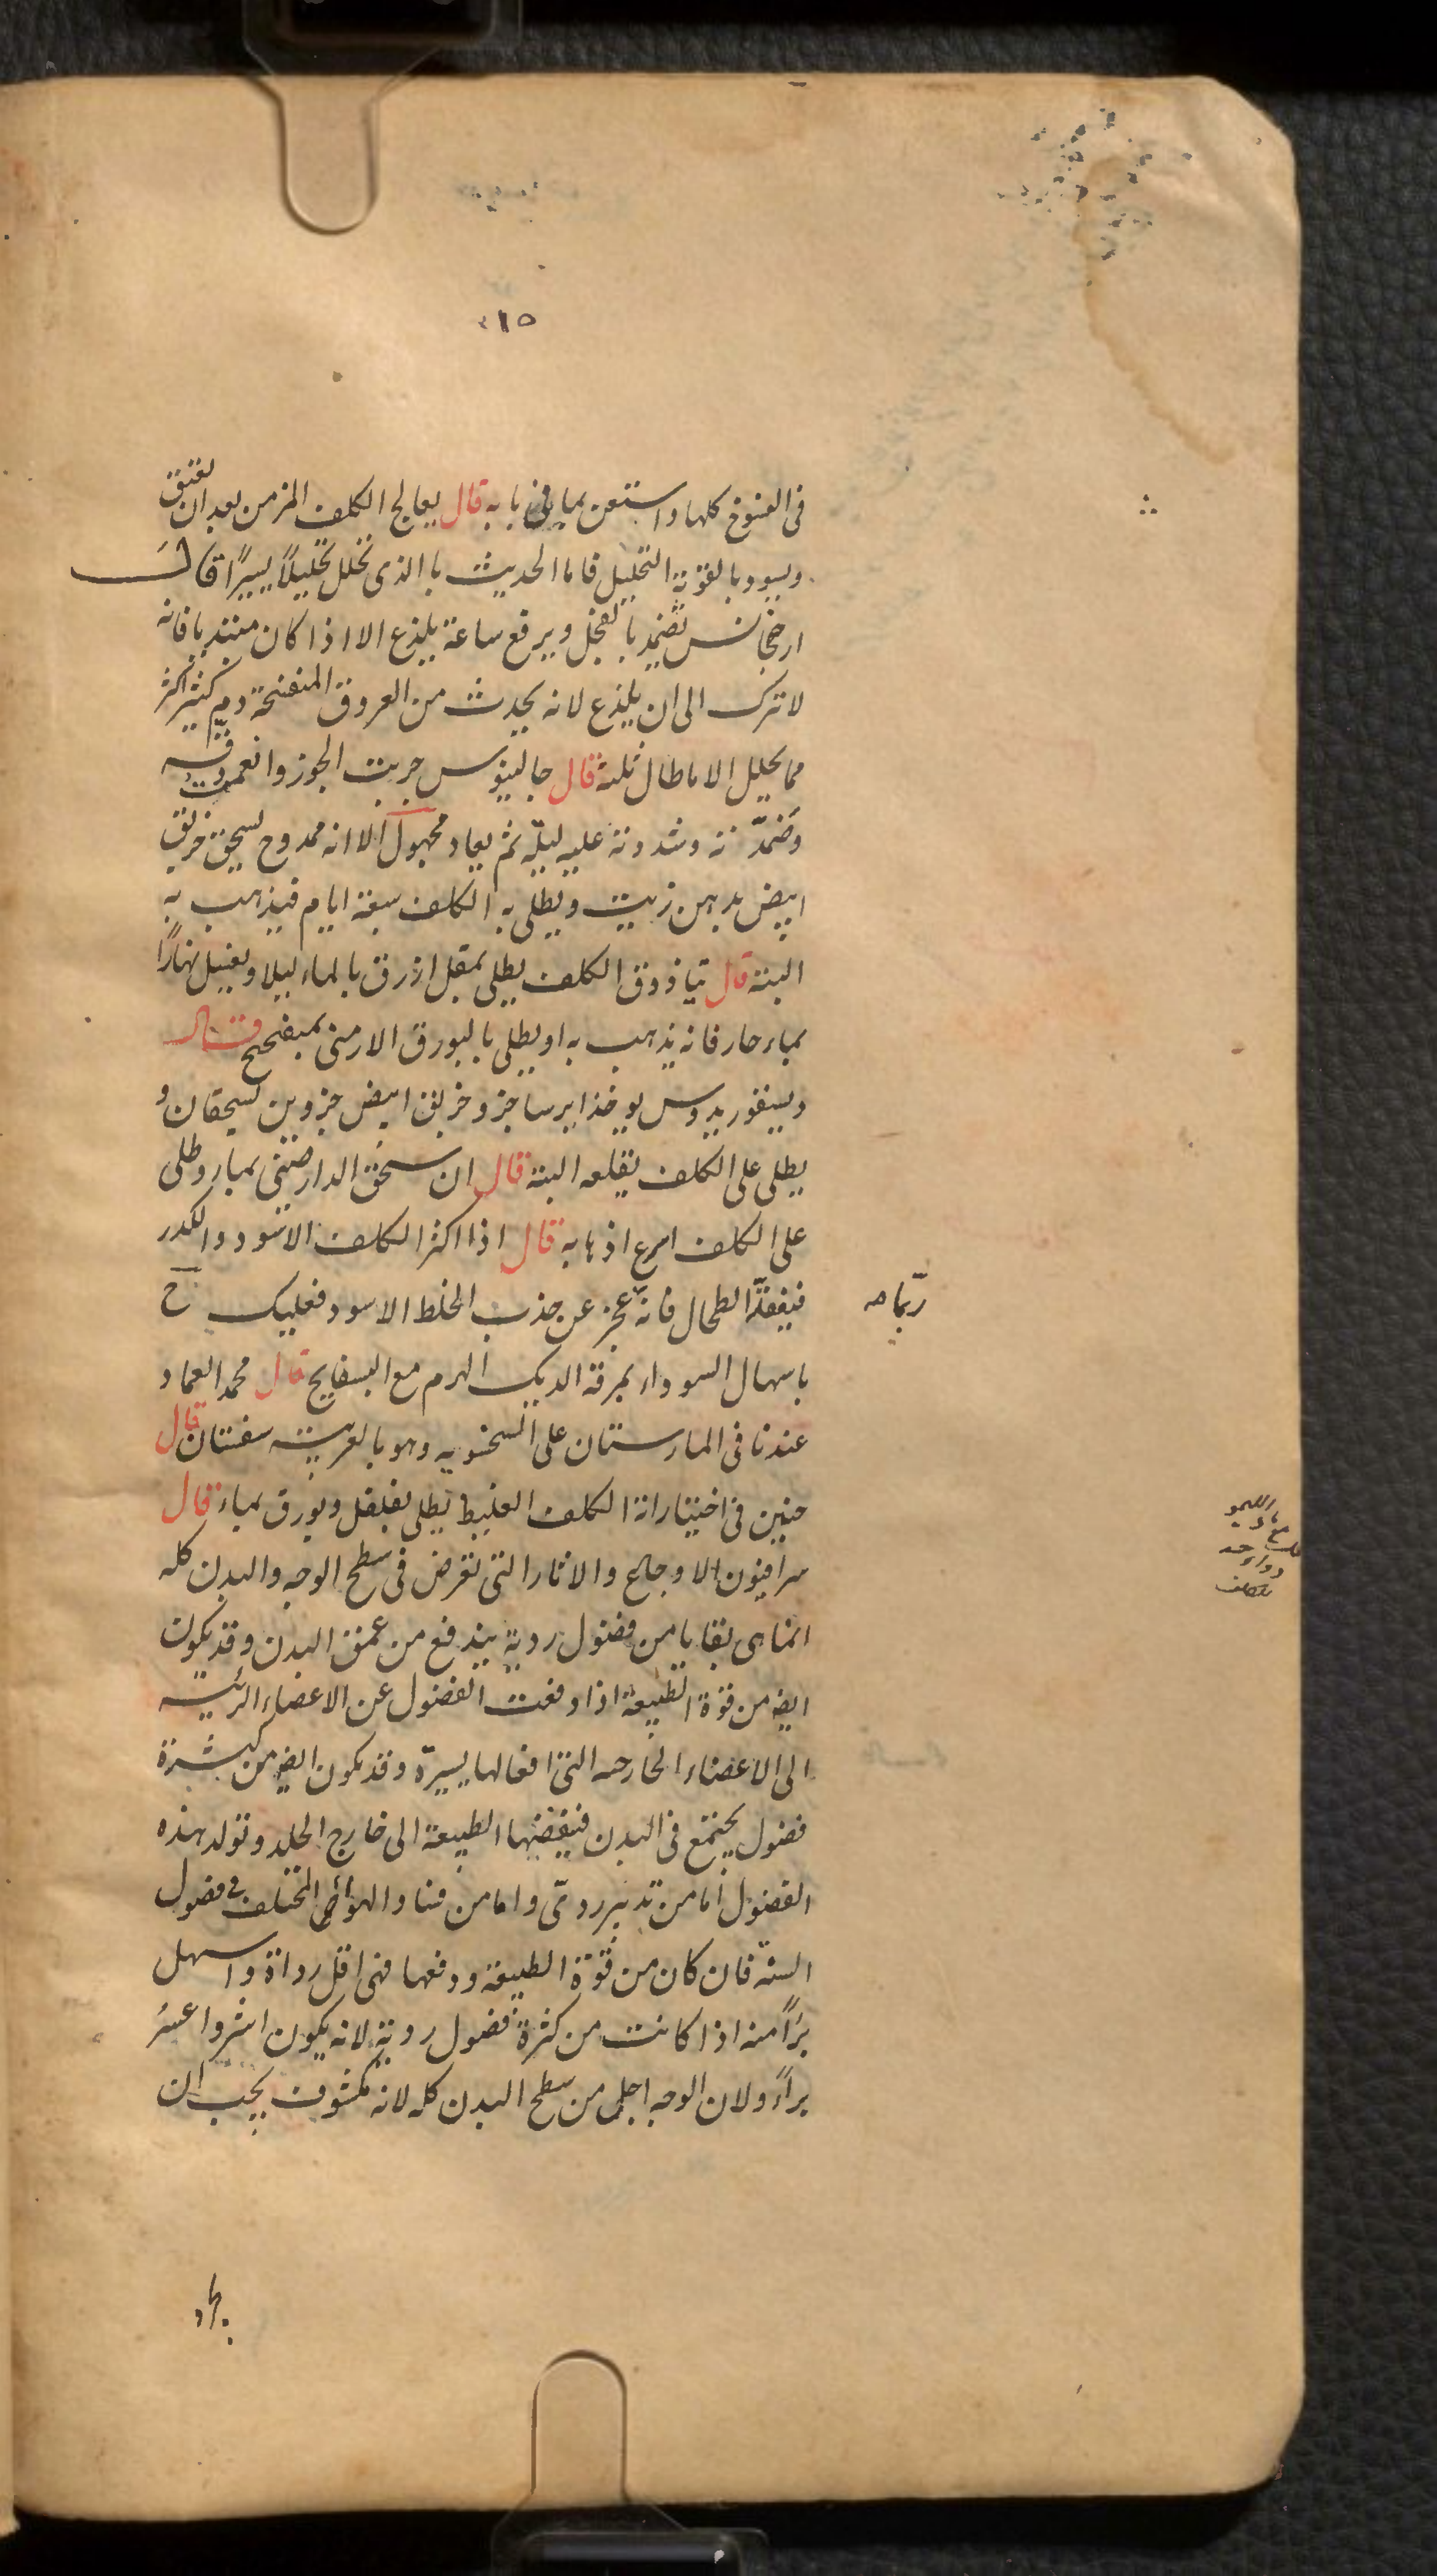 ٢١٥
فى الفنوخ كلها واستعن بما فى بابه قال يعالج الكلف المزمن بعد ان يعتق
ويسود بالقوية التحليل فاما الحديث با الذى تحلل تحليلًا يسيرًا قال
ارخجانس تضمد بالفجل ويرفع ساعة يلذع الا اذا كان مبتديا فانه
لا تترك الى ان يلذع لانه يحدث من العروق المنفتحة دم كثير اكثر
مما يحلل الا ما طال ثلثة قال جالينوس جربت الجوز وانعمت دقه
وضمدته وشدوته عليه ليلة ثم يعاد مجهول الا انه ممدوح يسحق خربق
ابيض بدهن زيت ويطلى به الكلف سبعة ايام فيذهب به
البتة قال تياذوق الكلف يطلى بمقل ازرق بالماء ليلا ويغسل نهارًا
بماء حار فانه يذهب به او يطلى بالبورق الارمنى بميفختج قال
ديسقوريدوس يوخذ ايرسا جزو خربق ابيض جزوين يسحقان و
يطلى على الكلف يقلعه البتة قال ان سحق الدارصينى بماء وطلى
على الكلف اسرع اذهابه قال اذا اكثر الكلف الاسود والكدر
فيفقد الطحال فانه عجز عن جذب الخلط الاسود فعليك ح
ربما صه
باسهال السوداء بمرقة الديك الهرم مع البسفايج قال محمد العماد
عندنا فى المارستان على السخنويه وهو بالعربيه سفتان قال
حنين فى اختياراته الكلف الغليظ يطلى بفلفل وبورق بماء قال
سرافيون الاوجاع والاثار التى تعرض فى سطح الوجه والبدن كله
انما هى بقايا من فضول ردية يندفع من عمق البدن وقد يكون
ايضه من قوة الطبيعة اذا دفعت الفضول عن الاعضاء الرئيسه
الى الاعضاء الخارجه التى افعالها يسيرة وقد يكون ايضه من كثرة
فضول يجتمع فى البدن فيقضيها الطبيعة الى خارج الجلد وتولد هذه
الفضول اما من تدبير ردى واما من فساد الهوائى المختلف فى فصول
السنة فان كان من قوة الطبيعة ودفعها فهى اقل رداة واسهل
برًا منه اذا كانت من كثرة فضول ردية لانه يكون اشر واعسر
براءً ولان الوجه اجلى من سطح البدن كله لانه مكشوف يجب ان